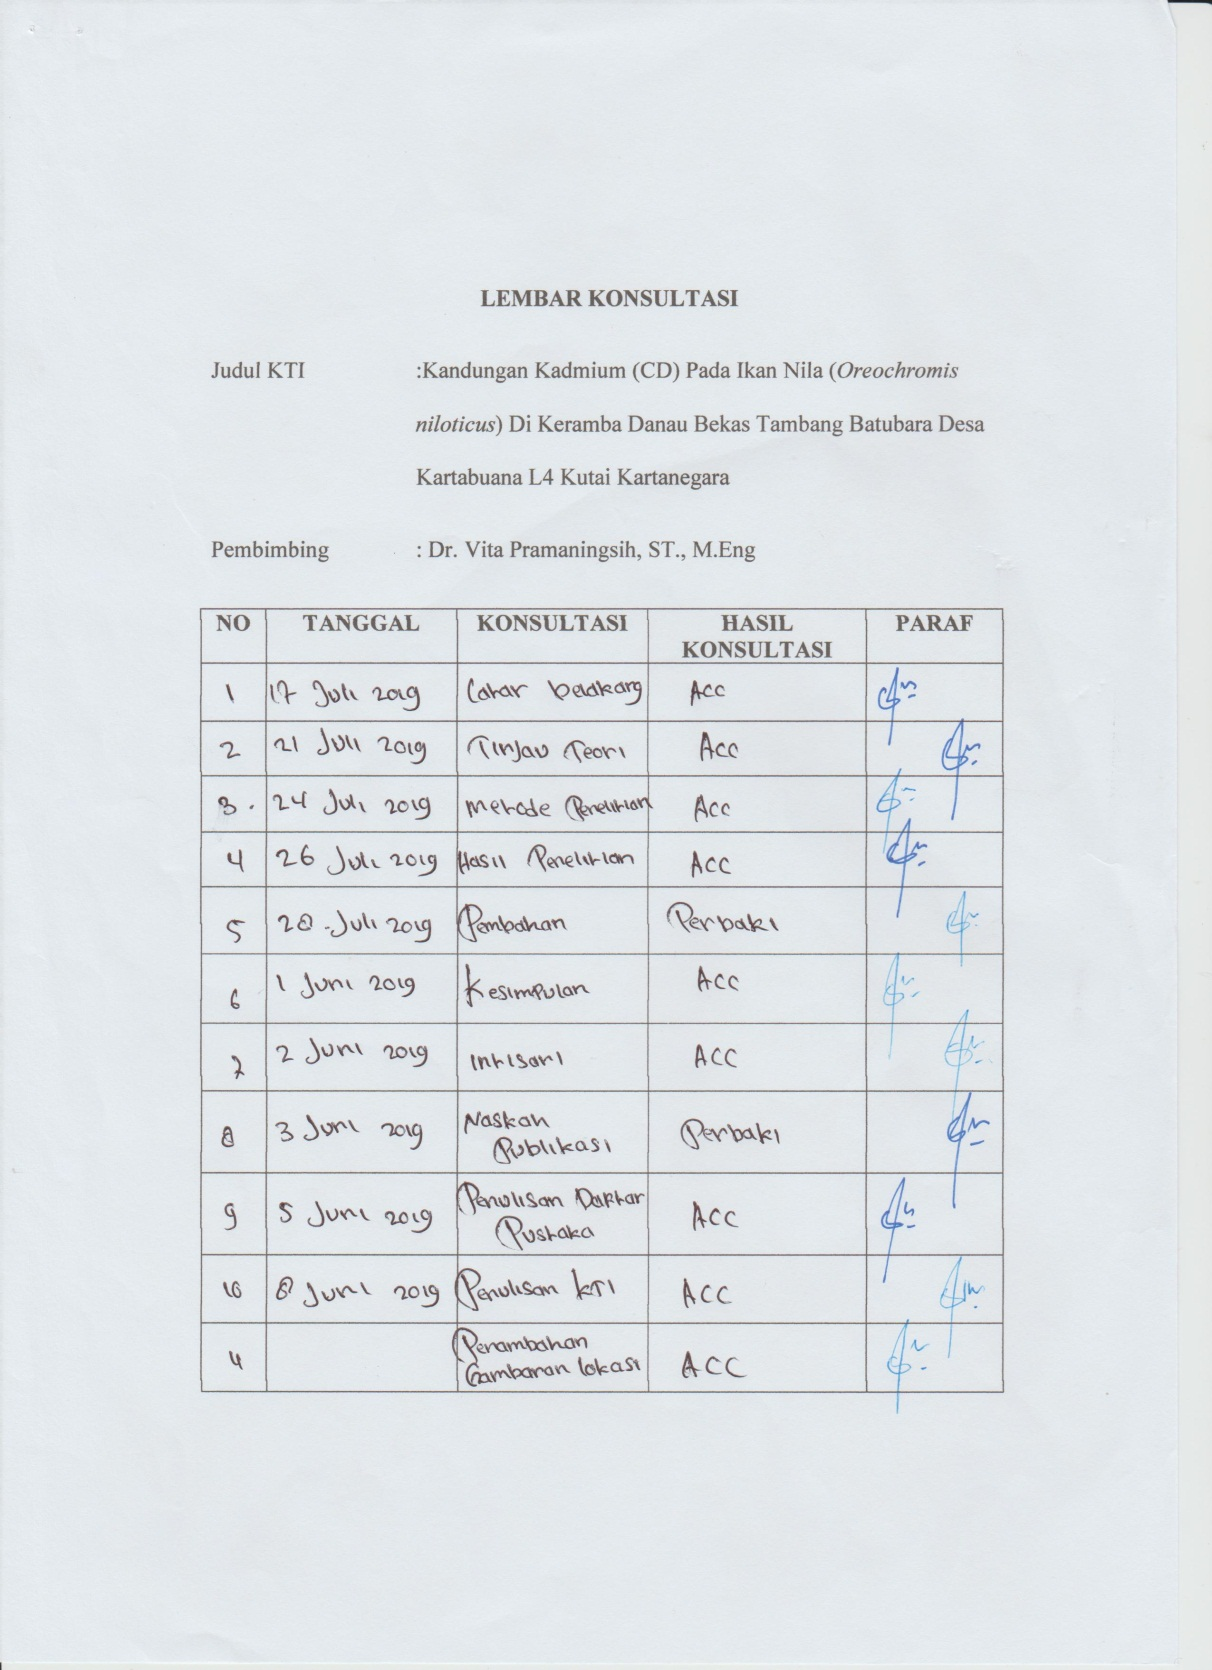 LEMBAR KONSULTASI
Judul KTI :Kandungan Kadmium (CD) Pada Ikan Nila (Oreochromis
niloticus) Di Keramba Danau Bekas Tambang Batubara Desa
Kartabuana L4 Kutai Kartanegara
Pembimbing : Dr. Vita Pramaningsih, ST., M.Eng
NO TANGGAL KONSULTASI HASIL KONSULTASI PARAF
1 17 Juli 2019 Latar belakang ACC
2 21 Juli 2019 Tinjau Teori Acc
3. 24 Juli 2019 Metode Penelitian Acc
4 26 Juli 2019 Hasil Penelitian ACC
5 28 Juli 2019 Pembahan Perbaki
6 1 Juni 2019 Kesimpulan ACC
7 2 Juni 2019 Intisari ACC
8 3 Juni 2019 Naskah
Publikasi Perbaki
9 5 Juni 2019 Penulisan Daftar
Pustaka ACC
10 8 Juni 2019 Penulisan KTI ACC
Penambahan
Gambaran lokasi ACC